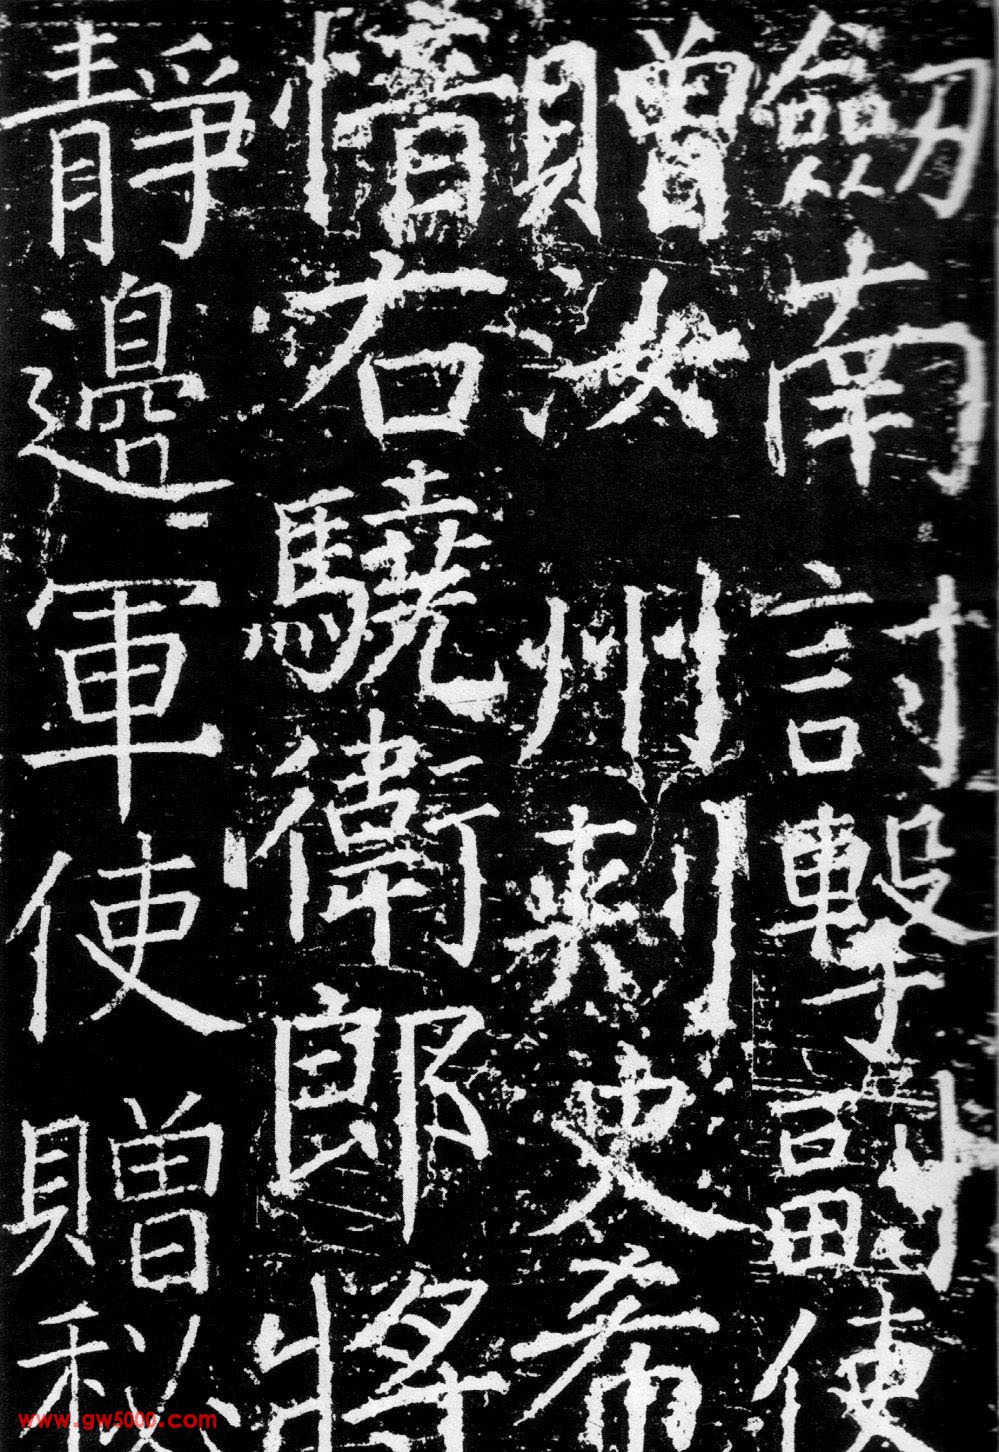 劒南討擊副使
贈汝州刺史希
愔右驍衛郎將
靜邊軍使贈秘
www.gw5000.com